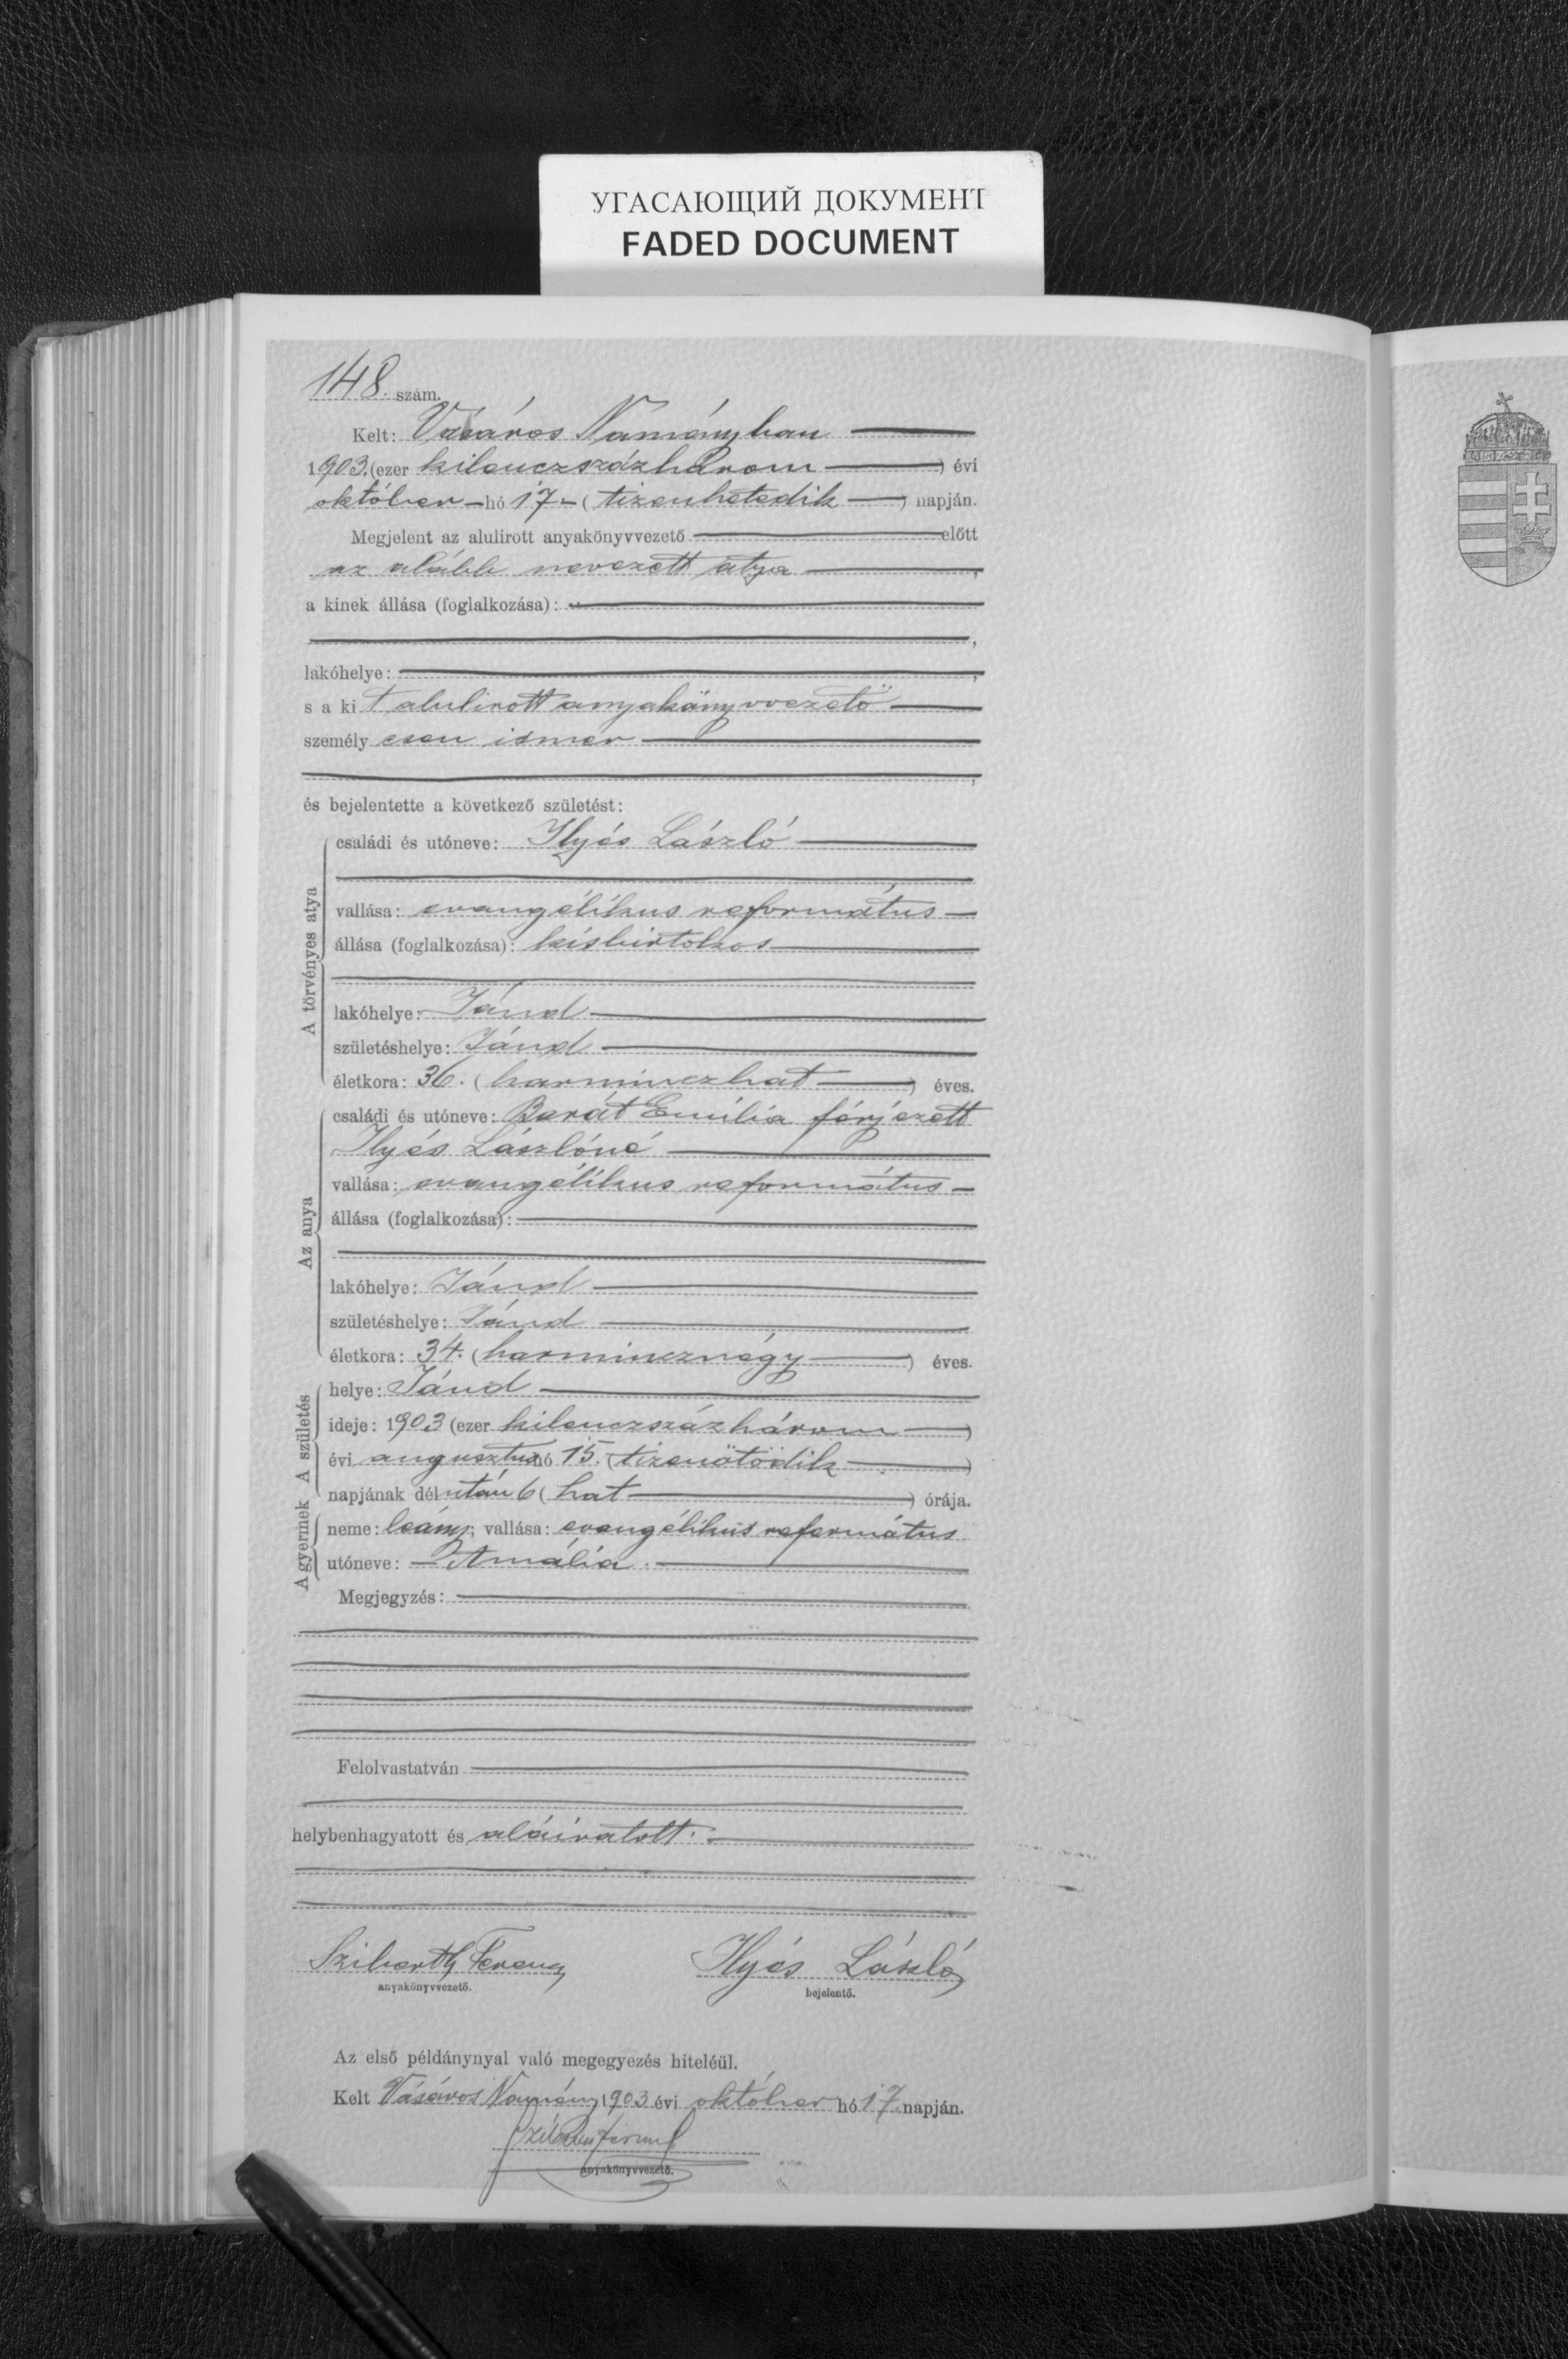 УГАСАЮЩИЙ ДОКУМЕНТ
FADED DOCUMENT
148. szám.
Kelt: Vásáros Naményban
1903. (ezer kilenczszázhárom) évi
október hó 17 (tizenhetedik) napján.
Megjelent az alulirott anyakönyvvezető előtt
az alább nevezett atya,
a kinek állása (foglalkozása):
,
lakóhelye: ,
s a kit alulirott anyakönyvvezető
személyesen ismer
,
és bejelentette a következő születést:
A törvényes atya
családi és utóneve: Ilyés László
vallása: evangélikus református
állása (foglalkozása): kisbirtokos
lakóhelye: Jánd
születéshelye: Jánd
életkora: 36. (harminczhat) éves.
Az anya
családi és utóneve: Barát Emilia férjezett
Ilyés Lászlóné
vallása: evangélikus református
állása (foglalkozása):
lakóhelye: Jánd
születéshelye: Jánd
életkora: 34. (harmincznégy) éves.
A születés
helye: Jánd
ideje: 1903 (ezer kilenczszázhárom)
évi augusztus hó 15. (tizenötödik)
napjának délután 6 (hat) órája.
A gyermek
neme: leány; vallása: evangélikus református
utóneve: Amália.
Megjegyzés:
Felolvastatván
helybenhagyatott és aláiratott.
Ferencz Ilyés László
anyakönyvvezető. bejelentő.
Az első példánynyal való megegyezés hiteléül.
Kelt Vásáros Namény 1903 évi október hó 17. napján.
anyakönyvvezető.